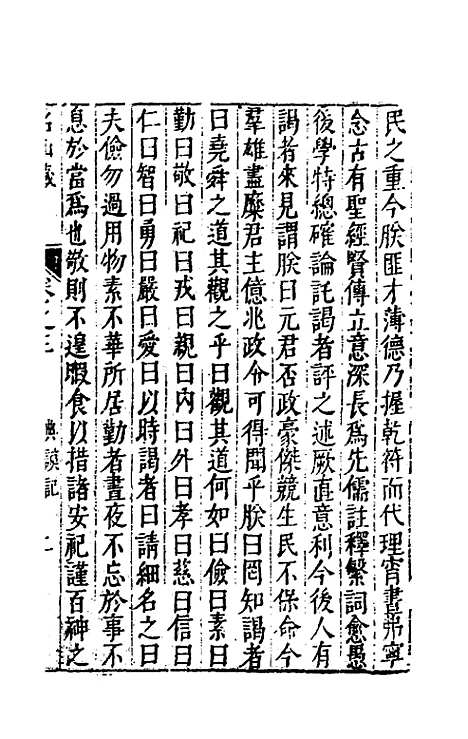 民之重今朕匪才薄德乃握乾符而代理宵晝弗寧
念古有聖經賢傳立意深長爲先儒註釋繁詞愈愚
後學特總確論託謁者評之述厥直意利今後人有
謁者來見謂朕曰元君否政豪傑競生民不保命今
羣雄盡糜君主億兆政令可得聞乎朕曰罔知謁者
曰堯舜之道其觀之乎曰觀其道何如曰儉曰素曰
勤曰敬曰祀曰戎曰親曰內曰外曰孝曰慈曰信曰
仁曰智曰勇曰嚴曰愛曰以時謁者曰請細名之曰
夫儉勿過用物素不華所居勤者晝夜不忘於事不
息於當爲也敬則不遑暇食以措諸安祀謹百神之
名山藏 卷之三 典謨記 二